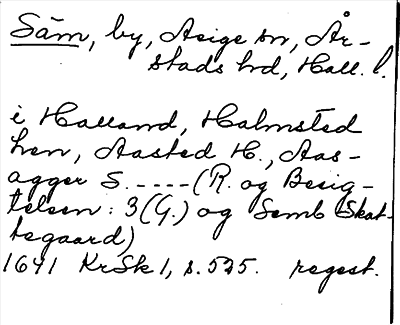 Säm, by, Asige sn, År-
stads hd, Hall. l.
i Halland, Halmsted
len, Aasted H., Aas-
agger S. ---- (R. og Besig-
telsen: 3 (G.) og Semb Skat-
tegaard)
1641 KrSk 1, s. 525. regest.